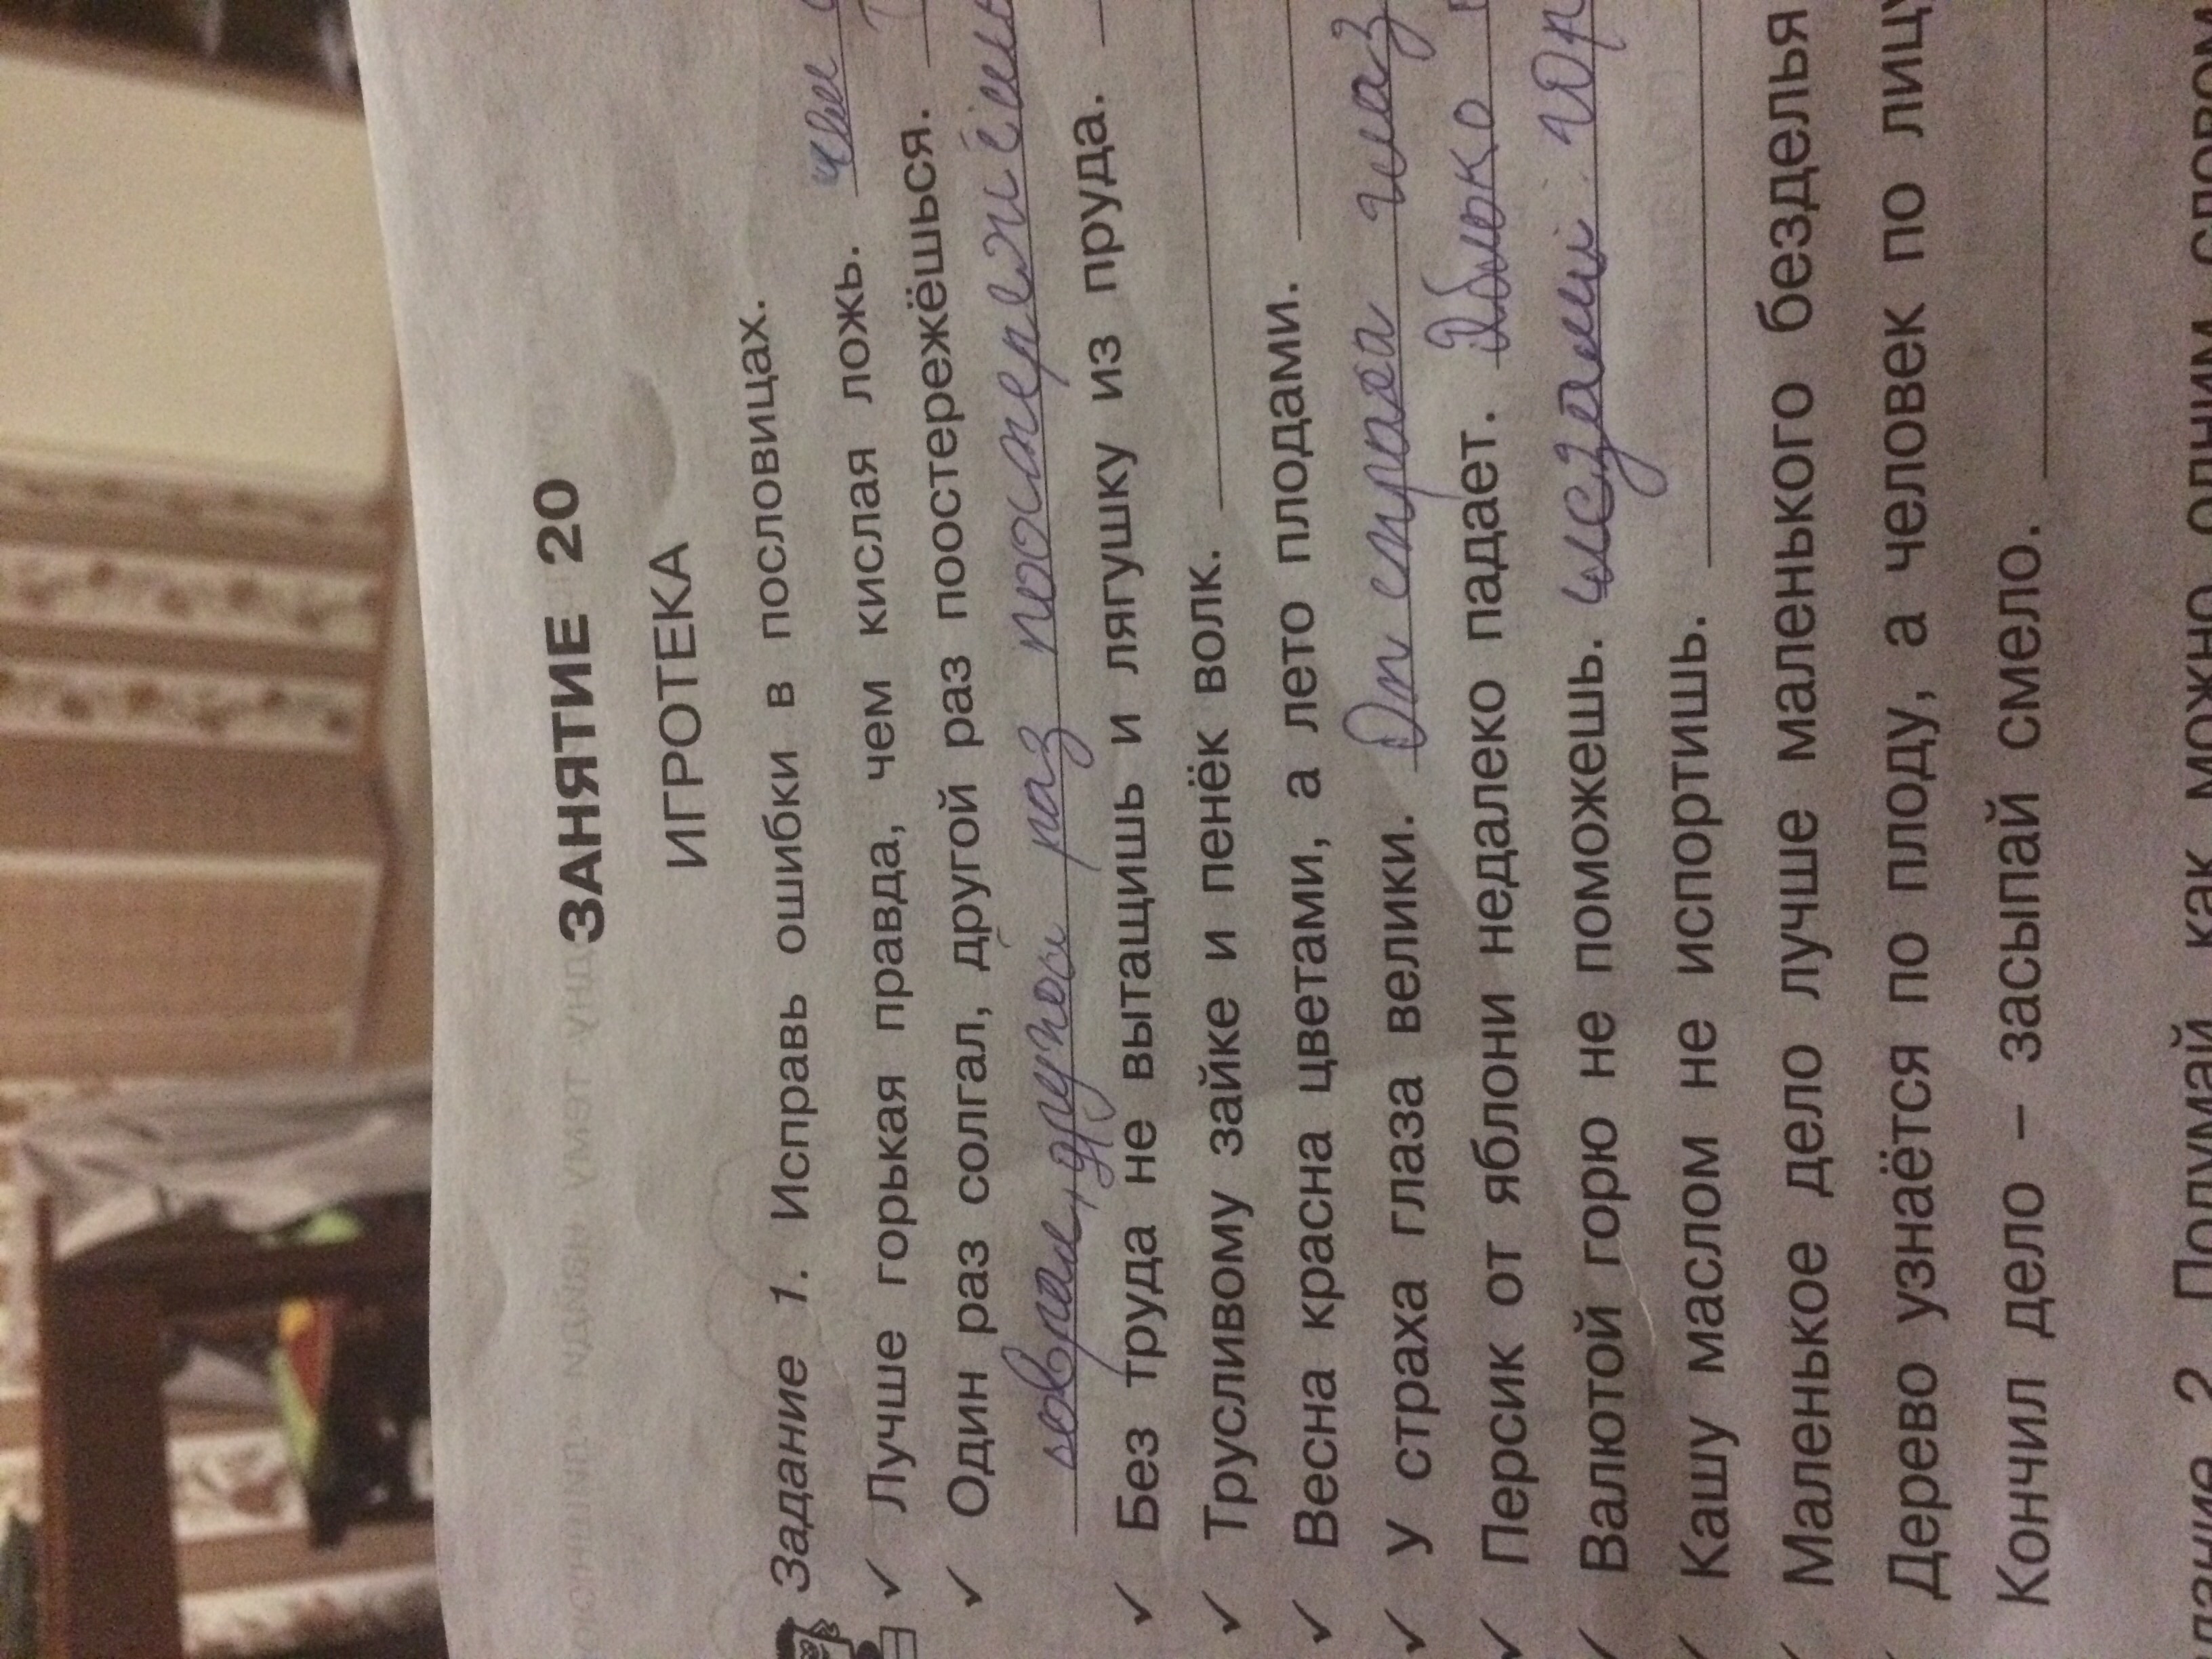 ЗАНЯТИЕ 20
ИГРОТЕКА
Задание 1. Исправь ошибки в пословицах.
✓ Лучше горькая правда, чем кислая ложь. чем
✓ Один раз солгал, другой раз поостережёшься.
соврал, другой раз поостережёшь
✓ Без труда не вытащишь и лягушку из пруда.
✓ Трусливому зайке и пенёк волк.
✓ Весна красна цветами, а лето плодами.
✓ У страха глаза велики. От страха глаз
✓ Персик от яблони недалеко падает. Яблоко
✓ Валютой горю не поможешь. слезами гор
✓ Кашу маслом не испортишь.
Маленькое дело лучше маленького безделья
Дерево узнаётся по плоду, а человек по лицу
Кончил дело – засыпай смело.
2. Подумай, как можно одним словом